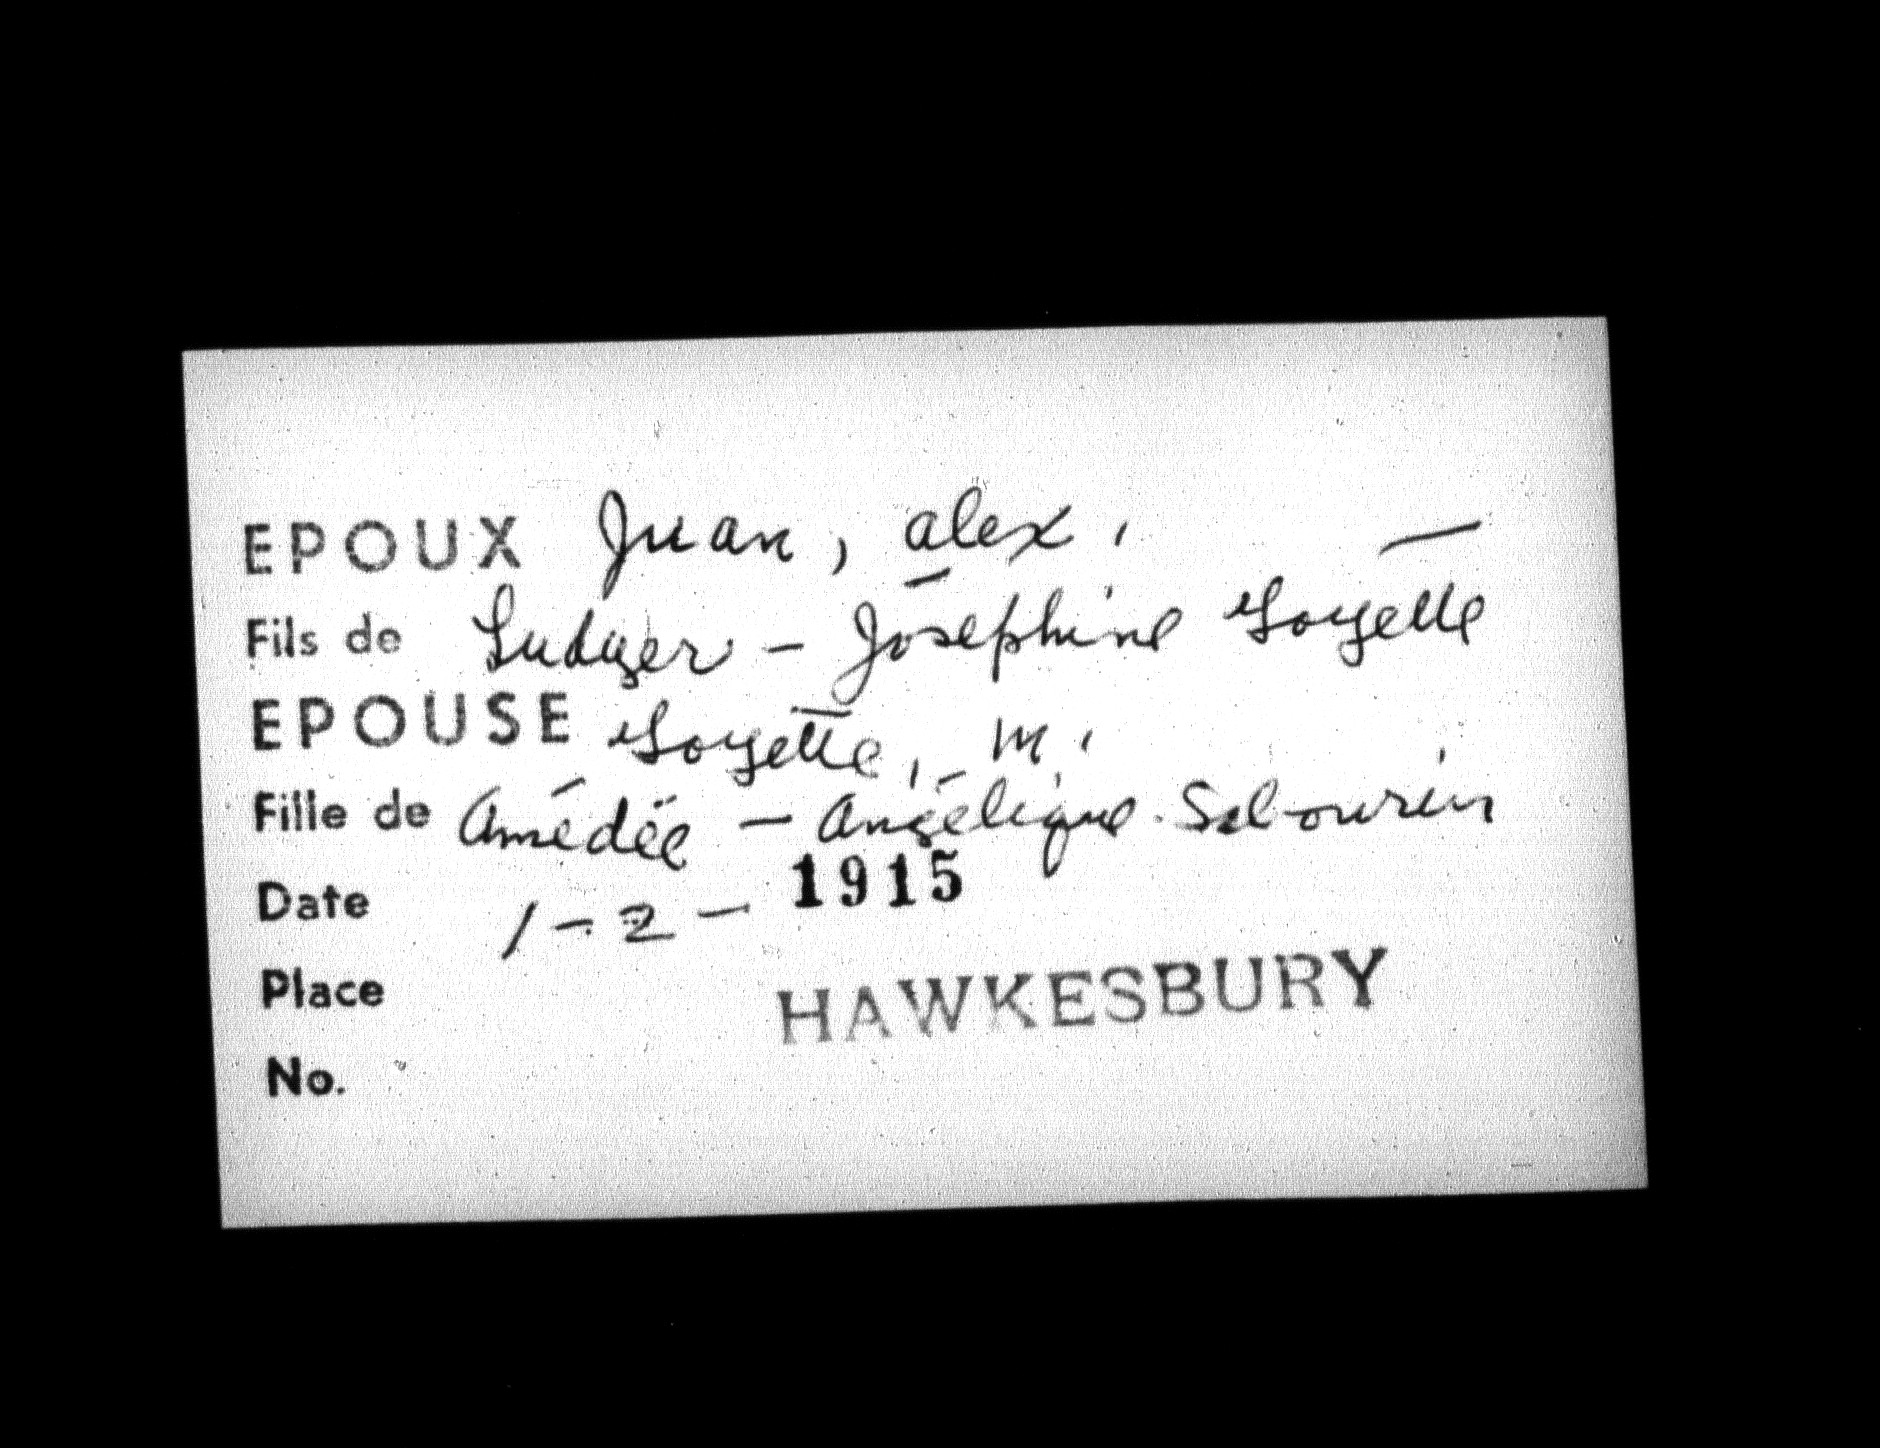 EPOUX Juan, Alex.
Fils de Ludger - Joséphine Goyette
EPOUSE Goyette, M.
Fille de Amédée - Angélique Sabourin
Date 1-2-1915
Place HAWKESBURY
No.